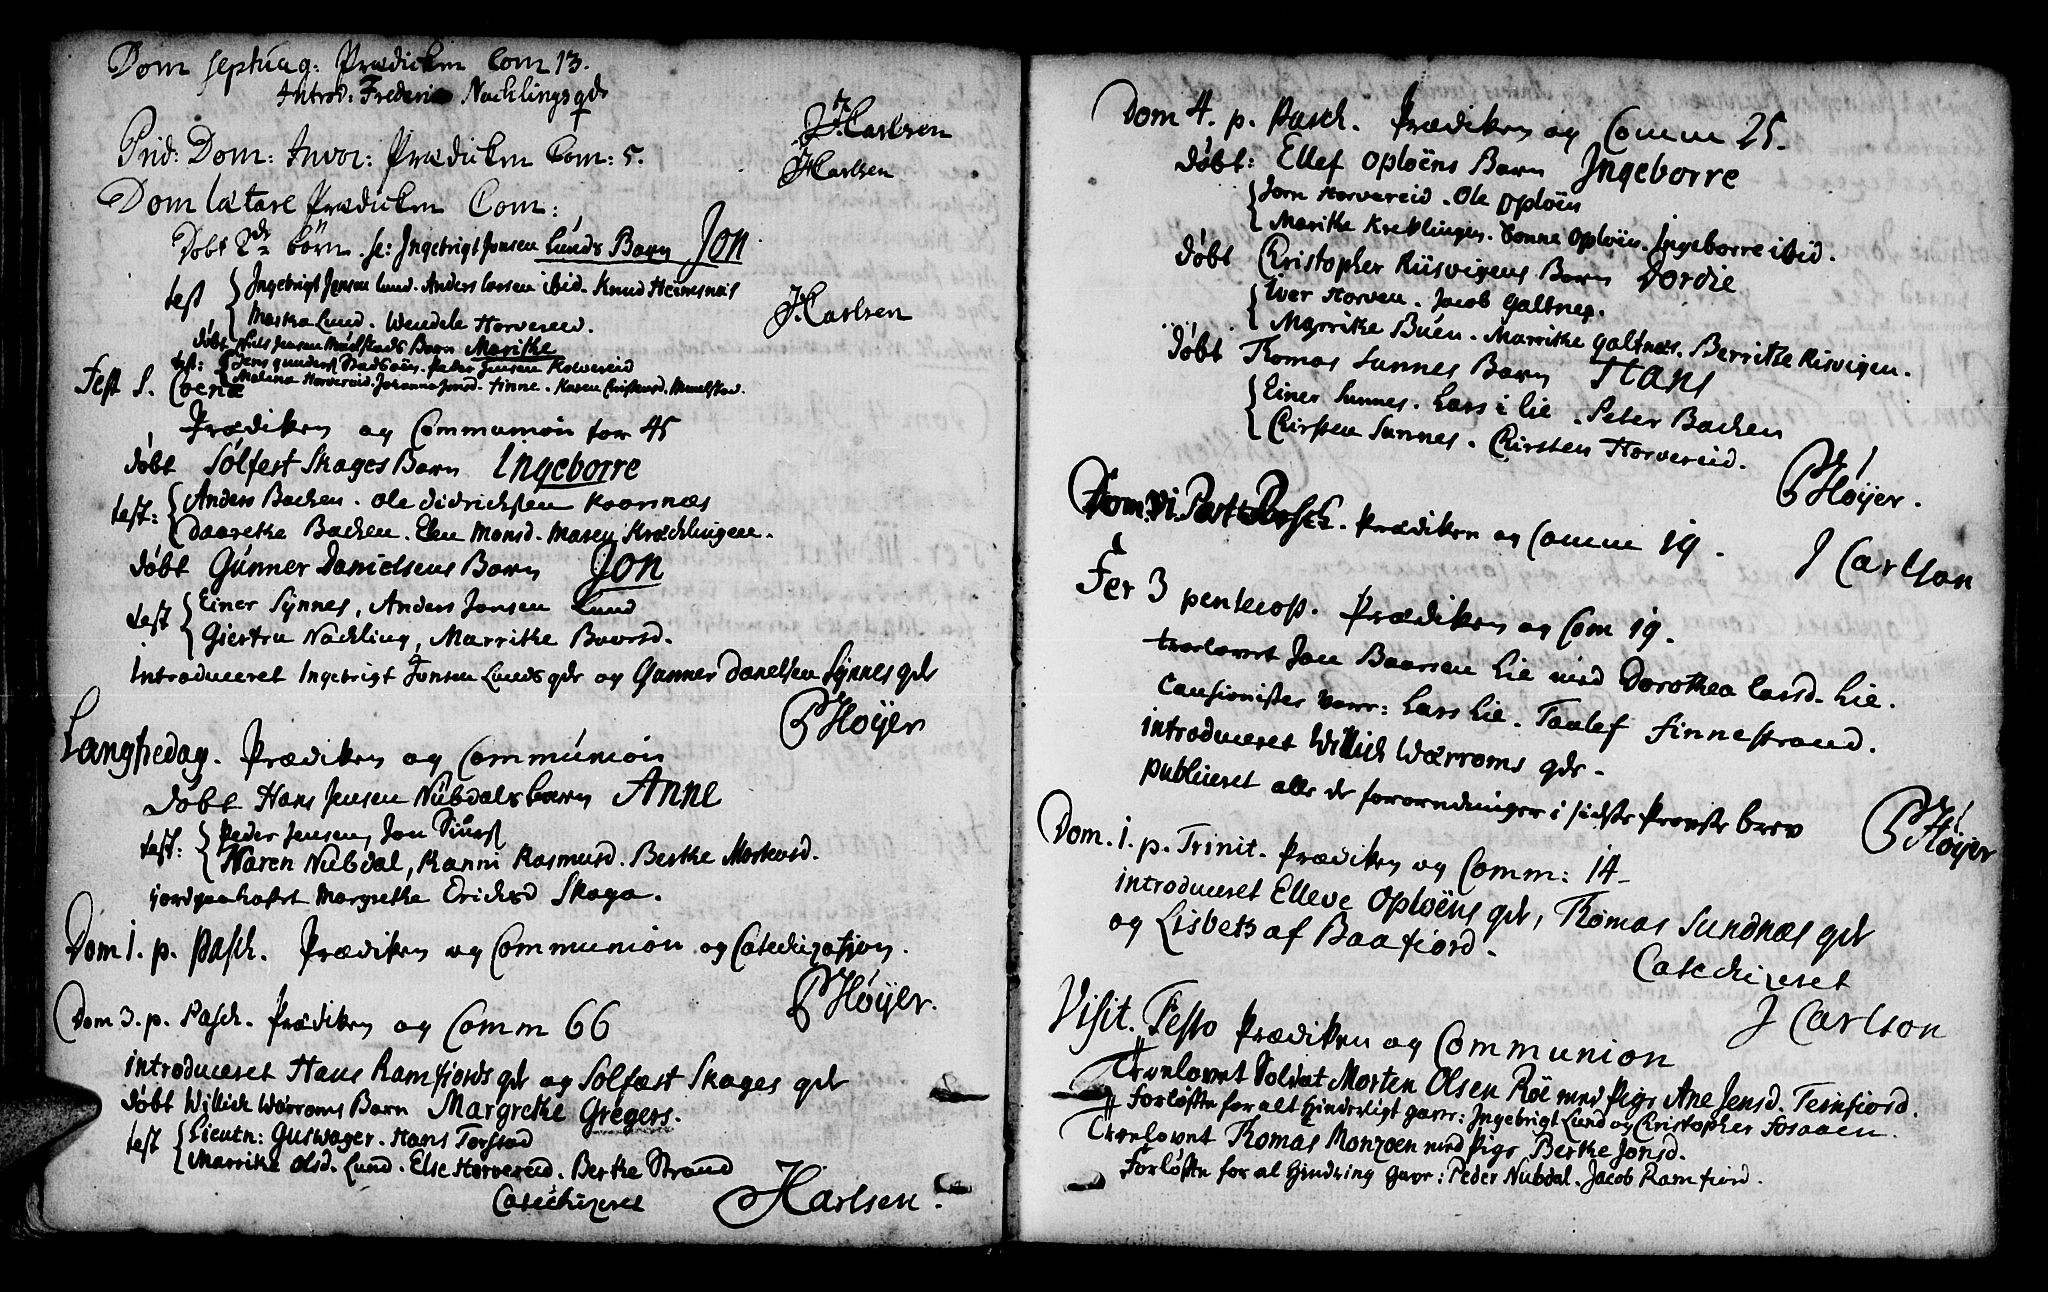 Dom septuag: Prædicken Com 13.
Introd: Frederic Nacklings qde
J Karlsen
Prid: Dom: Invoc: Prædicken Com: 5.
J Karlsen
Dom lætare Prædicken Com:
Døbt 2de börn. sc: Ingebrigt Jonsen Lunds Barn Jon
test Ingebrigt Jonsen Lund. Anders Larsen ibid. Knud Heimsnæs
Marta Lund. Wendele Horvereid.
J. Karlsen
døbt Niels Jensen Barn Maritke
test: Jens Peter Jensen Horvereid
Malena Horvereid. Johanna Jonsd. Finne. Karen Christensd.
Fest S. Coenæ
Prædiken og Communion for 45
døbt Solfest Skages Barn Ingeborre
test: Anders Bachen. Ole Didrichsen Koornæs
Daaretke Bachen. Elen Monsd. Maren Kræcklingen.
døbt Gunner Danielsens Barn Jon
test Einer Synnes, Anders Jonsen Lund
Giertru Nackling, Marritke Baarsd.
Introduceret Ingebrigt Jonsen Lunds qde og Gunner Danelsen Synnes qde
P Høyer
Langfredag. Prædiken og Communion
Døbt Hans Jensen Nubdals barn Anne
test: Peder Jensen, Jon Siurs
Karen Nubdal, Ranni Rasmusd. Berthe Morkusd.
jordpaakastet Margrethe Ericksd Skage.
Dom 1. p. Pasch. Prædiken og Communion og Catechization.
P Høyer.
Dom 3. p. Pasch. Prædiken og Comm 66
introduceret Hans Ramfiords qde og Solfæst Skages qde
døbt Willich Wærroms Barn Margrethe Gregers.
test Lieutn: Guswager. Hans Torstad
Marrithe Olsd. Lund. Else Horvereid. Berthe Strand
Catechizeret J Karlsen.
Dom 4. p. Pasch. Prædiken og Comm 25.
døbt: Ellef Oploëns Barn Ingeborre
Jorn Horvereid. Ole Oploën
Maritke Kreklingen. Oploën. Ingeborre ibid.
døbt Christopher Riisvigens Barn Dordie
Iver Horven. Jacob Galtnes.
Marritke Buen. Marritke Galtnes. Berritke Risvigen.
døbt Thomas Sunnes Barn Hans
Einer Sunnes. Lars i Lie. Peter Bachen
Chirsten Sunnes. Chirsten Horvereid.
P Høyer.
Dom. Vi. Post Pasch. Prædiken og Comm 19.
J Carlson
Fer 3 pentecost. Prædiken og Com 19.
trolovet Jon Baarsen Lie med Dorothea Larsd. Lie.
Cautionister varr: Lars Lie. Taalef Finnestrand.
introduceret Willich Wærroms qde.
publiceret alle de forordninger i sidste Provste brev
P Høyer
Dom. 1. p. Trinit. Prædiken og Comm: 14
introduceret Elleve Oploëns qde, Thomas Sundnæs qde
og Lisbeth af Baafiord.
Catechizeret
J Carlson
Visit. Festo Prædiken og Communion
Trolovet Soldat Morten Olsen Röe med Pige Ane Jensd. Teinfiord.
Forløfte for alt Hinderligt gavr: Ingebrigt Lund og Christopher Fosaaen.
Trolovet Thomas Monzoen med Pige Berthe Jonsd.
Forløfte for al Hindring gavr: Peder Nubdal. Jacob Ramfiord.